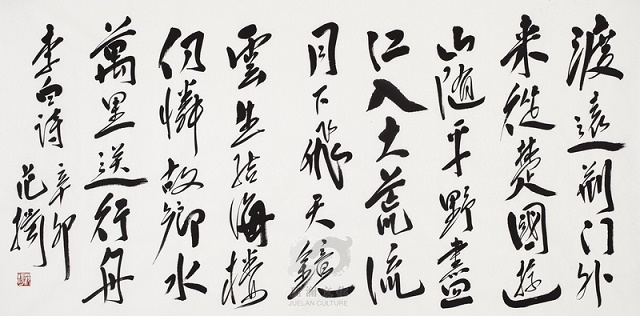 渡遠荊门外
来從楚國遊
山随平野盡
江入大荒流
月下飛天鏡
雲生结海樓
仍憐故鄉水
萬里送行舟
李白诗
辛卯
范
JUELAN CULTURE